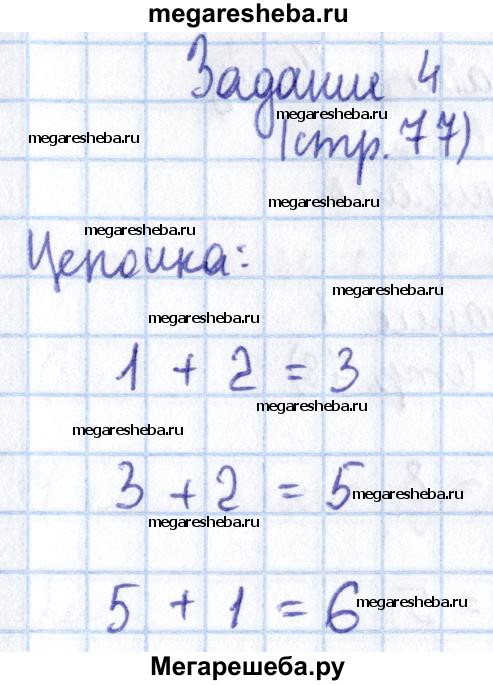 megaresheba.ru
Задание 4
megaresheba.ru
megaresheba.ru
(стр. 77)
megaresheba.ru
megaresheba.ru
Цепочка:
megaresheba.ru
megaresheba.ru
1 + 2 = 3
megaresheba.ru
megaresheba.ru
3 + 2 = 5
megaresheba.ru
megaresheba.ru
5 + 1 = 6
megaresheba.ru
Мегарешеба.ру